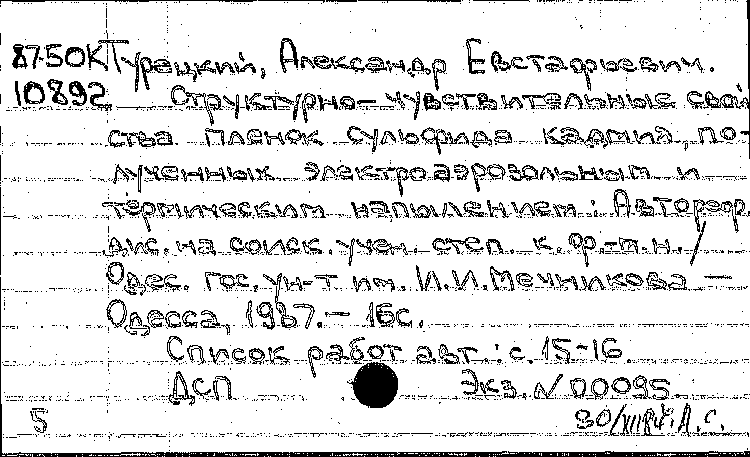 87-50К Турецкий, Александр Евстафьевич.
10892 Структурно-чувствительные свой
ства пленок сульфида кадмия, по-
лученных электроаэрозольным и
термическим напылением: Автореф.
дис. на соиск. учен. степ. к. ф.-м.н. /
Одес. гос. ун-т им. И.И.Мечникова —
Одесса, 1987. - 16с.
Список работ авт.: с. 15-16.
ДСП Экз. N 00095.
5 А.С.